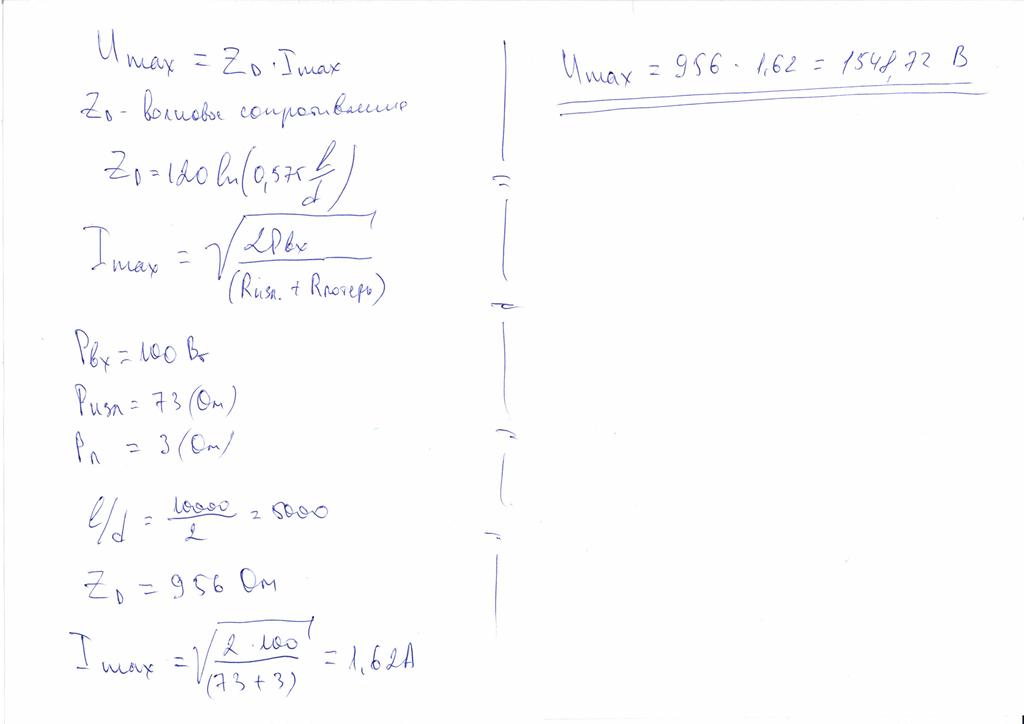 Umax = ZD · Imax
ZD - волновое сопротивление
ZD = 120 ln(0,575 l/d)
Imax = √(2Pвх / (Rизл. + Rпотерь))
Pвх = 100 Вт
Pизл = 73 (Ом)
Pп = 3 (Ом)
l/d = 10000/2 = 5000
ZD = 956 Ом
Imax = √(2 · 100 / (73 + 3)) = 1,62A
Umax = 956 · 1,62 = 1548,72 В